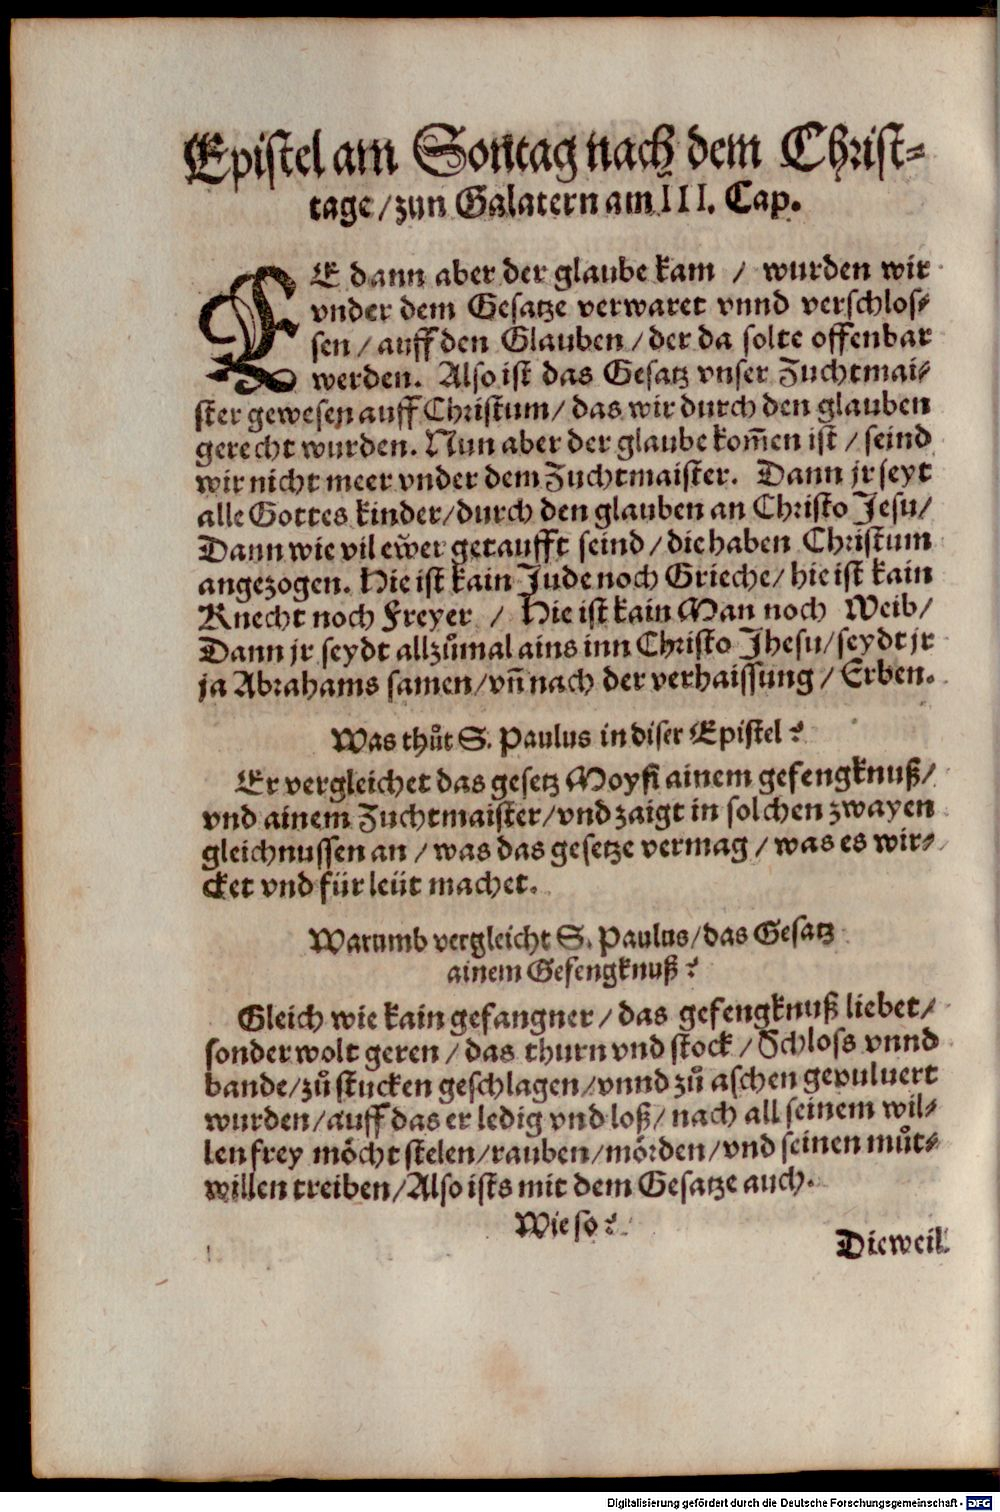 Epistel am Sontag nach dem Christ⸗
tage / zun Galatern am III. Cap.
EE dann aber der glaube kam / wurden wir
vnder dem Gesatze verwaret vnnd verschlos⸗
sen / auff den Glauben / der da solte offenbar
werden. Also ist das Gesatz vnser Zuchtmai⸗
ster gewesen auff Christum / das wir durch den glauben
gerecht wurden. Nun aber der glaube kom̃en ist / seind
wir nicht meer vnder dem Zuchtmaister. Dann jr seyt
alle Gottes kinder / durch den glauben an Christo Jesu /
Dann wie vil ewer getaufft seind / die haben Christum
angezogen. Hie ist kain Jude noch Grieche / hie ist kain
Knecht noch Freyer / Hie ist kain Man noch Weib /
Dann jr seydt allzuͦmal ains inn Christo Jhesu / seydt jr
ja Abrahams samen / vñ nach der verhaissung / Erben.
Was thuͦt S. Paulus in diser Epistel?
Er vergleichet das gesetz Moysi ainem gefengknuß /
vnd ainem Zuchtmaister / vnd zaigt in solchen zwayen
gleichnussen an / was das gesetze vermag / was es wir⸗
cket vnd für leüt machet.
Warumb vergleicht S. Paulus / das Gesatz
ainem Gefengknuß?
Gleich wie kain gefangner / das gefengknuß liebet /
sonder wolt geren / das thurn vnd stock / Schloss vnnd
bande / zuͦ stucken geschlagen / vnnd zuͦ aschen gepuluert
wurden / auff das er ledig vnd loß / nach all seinem wil⸗
len frey möcht stelen / rauben / mörden / vnd seinen muͦt⸗
willen treiben / Also ists mit dem Gesatze auch.
Wie so?
Dieweil
Digitalisierung gefördert durch die Deutsche Forschungsgemeinschaft - DFG